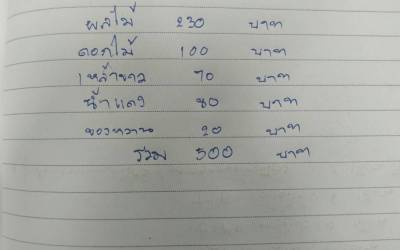 ผลไม้ 230 บาท
ดอกไม้ 100 บาท
เหล้าขาว 70 บาท
น้ำแดง 80 บาท
ของหวาน 20 บาท
รวม 500 บาท